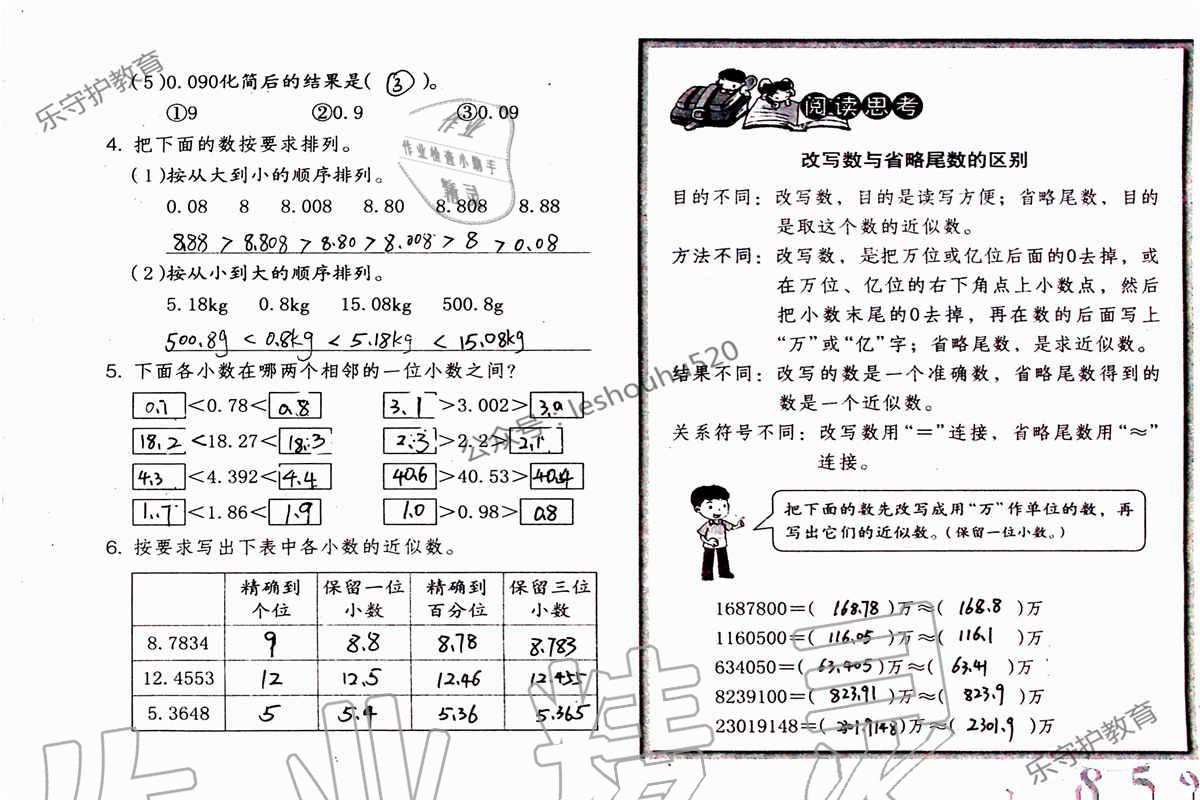 (5)0.090化简后的结果是( ③ )。
①9 ②0.9 ③0.09
4. 把下面的数按要求排列。
(1)按从大到小的顺序排列。
0.08 8 8.008 8.80 8.808 8.88
8.88 > 8.808 > 8.80 > 8.008 > 8 > 0.08
(2)按从小到大的顺序排列。
5.18kg 0.8kg 15.08kg 500.8g
500.8g < 0.8kg < 5.18kg < 15.08kg
5. 下面各小数在哪两个相邻的一位小数之间?
0.7 <0.78< 0.8 3.1 >3.002> 3.0
18.2 <18.27< 18.3 2.3 >2.2> 2.1
4.3 <4.392< 4.4 40.6 >40.53> 40.4
1.7 <1.86< 1.9 1.0 >0.98> 0.8
6. 按要求写出下表中各小数的近似数。
精确到个位 保留一位小数 精确到百分位 保留三位小数
8.7834 9 8.8 8.78 8.783
12.4553 12 12.5 12.46 12.455
5.3648 5 5.4 5.36 5.365
阅读思考
改写数与省略尾数的区别
目的不同：改写数，目的是读写方便；省略尾数，目的
是取这个数的近似数。
方法不同：改写数，是把万位或亿位后面的0去掉，或
在万位、亿位的右下角点上小数点，然后
把小数末尾的0去掉，再在数的后面写上
“万”或“亿”字；省略尾数，是求近似数。
结果不同：改写的数是一个准确数，省略尾数得到的
数是一个近似数。
关系符号不同：改写数用“＝”连接，省略尾数用“≈”
连接。
把下面的数先改写成用“万”作单位的数，再
写出它们的近似数。(保留一位小数。)
1687800＝( 168.78 )万≈( 168.8 )万
1160500＝( 116.05 )万≈( 116.1 )万
634050＝( 63.405 )万≈( 63.41 )万
8239100＝( 823.91 )万≈( 823.9 )万
23019148＝( 2301.9148 )万≈( 2301.9 )万
乐守护教育
作业
作业检查小助手
精灵
公众号：leshouhu520
作业精灵
乐守护教育
859